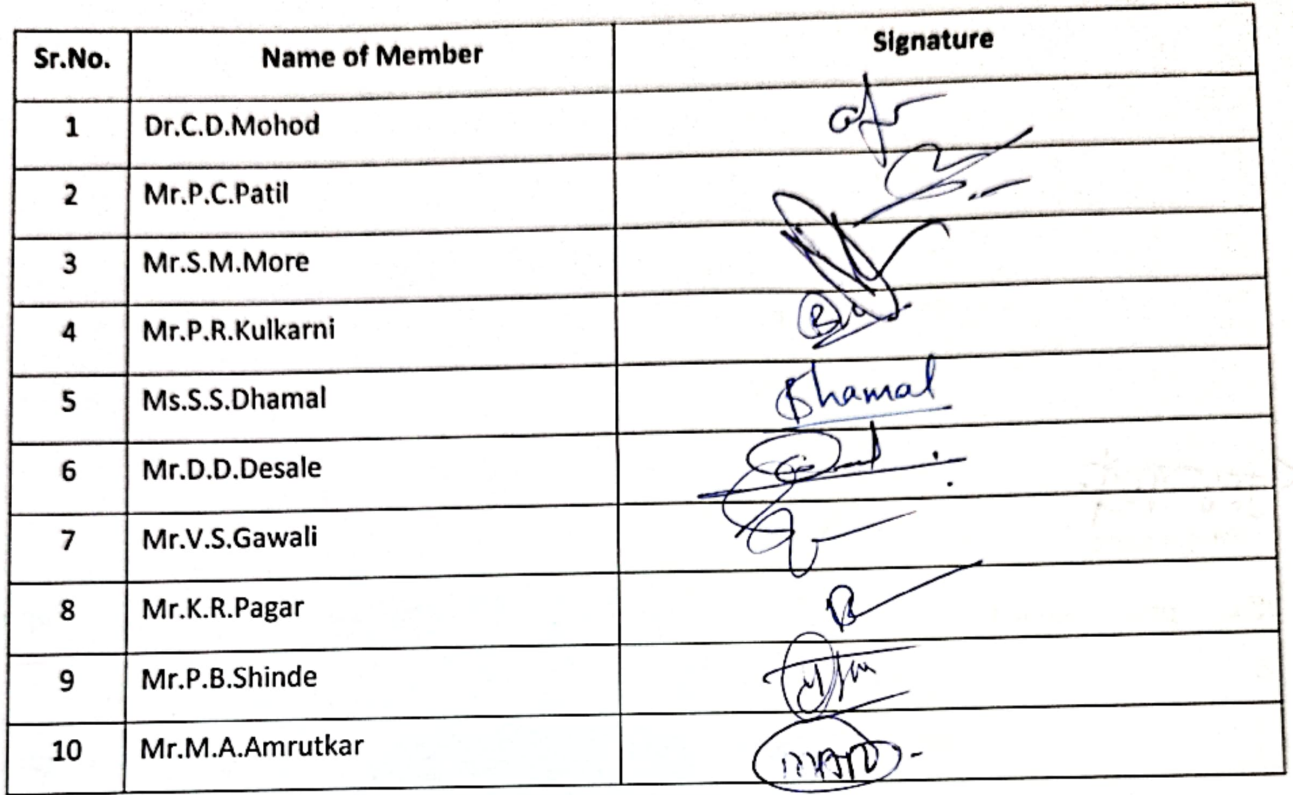 Sr.No. Name of Member Signature
1 Dr.C.D.Mohod
2 Mr.P.C.Patil
3 Mr.S.M.More
4 Mr.P.R.Kulkarni
5 Ms.S.S.Dhamal Dhamal
6 Mr.D.D.Desale
7 Mr.V.S.Gawali
8 Mr.K.R.Pagar
9 Mr.P.B.Shinde
10 Mr.M.A.Amrutkar